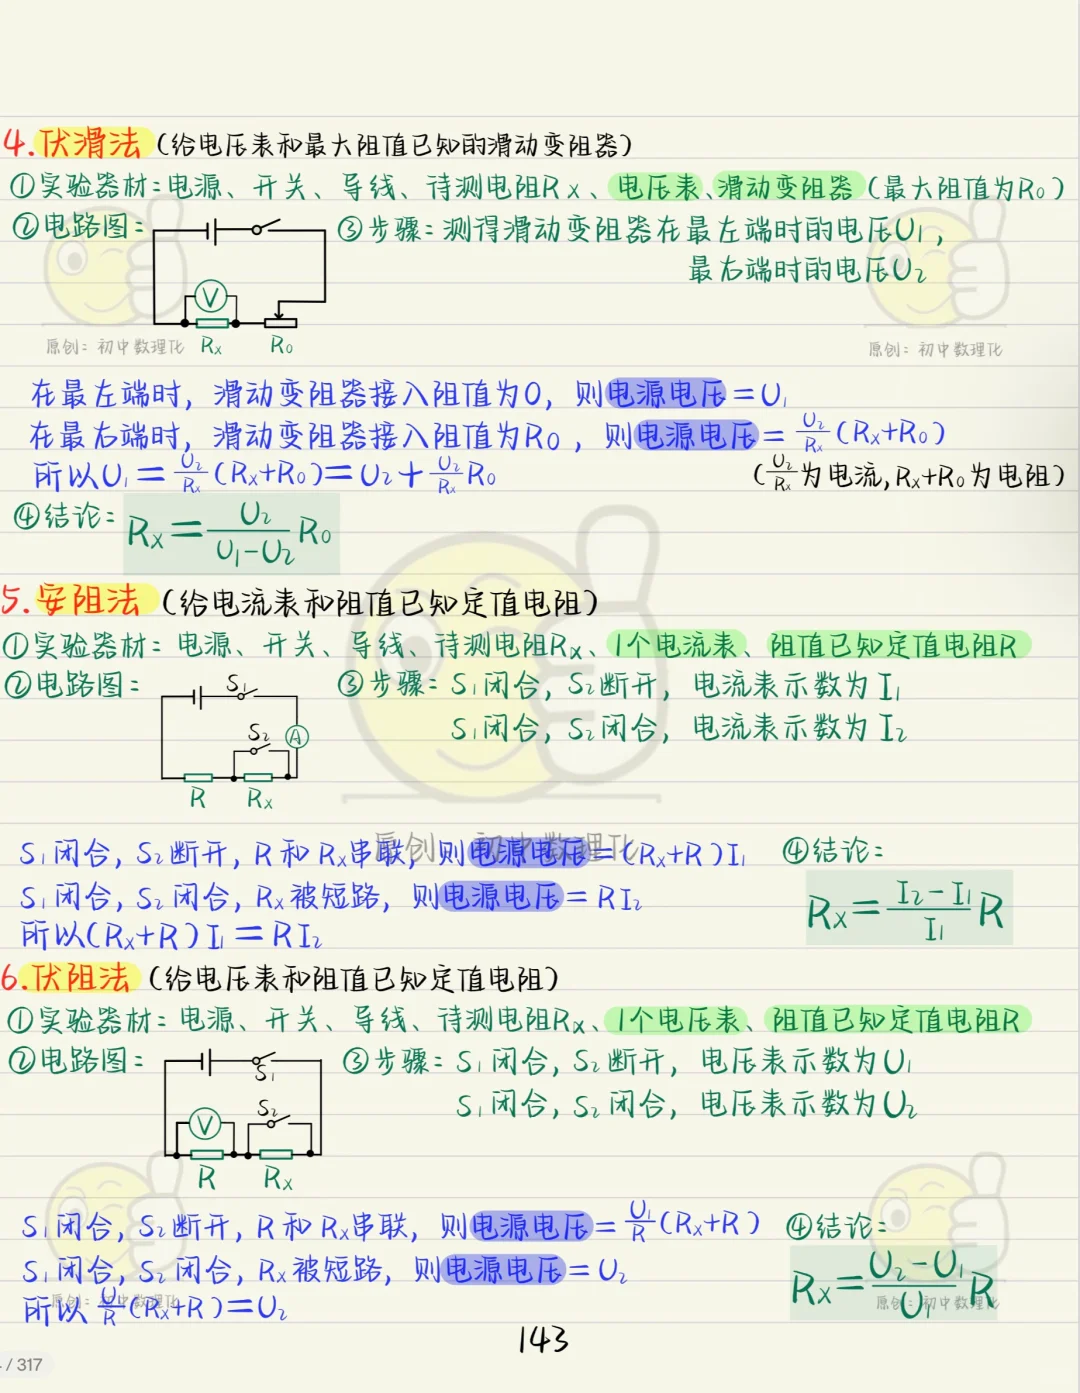 4.伏滑法(给电压表和最大阻值已知的滑动变阻器)
①实验器材:电源、开关、导线、待测电阻Rx、电压表、滑动变阻器(最大阻值为R₀)
②电路图:
③步骤:测得滑动变阻器在最左端时的电压U₁,
最右端时的电压U₂
V
Rx R₀
原创:初中数理化
原创:初中数理化
在最左端时,滑动变阻器接入阻值为0,则电源电压=U₁
在最右端时,滑动变阻器接入阻值为R₀,则电源电压=U₂/Rx(Rx+R₀)
所以U₁=U₂/Rx(Rx+R₀)=U₂+U₂/Rx R₀
(U₂/Rx为电流,Rx+R₀为电阻)
④结论:Rx=U₂/(U₁-U₂) R₀
5.安阻法(给电流表和阻值已知定值电阻)
①实验器材:电源、开关、导线、待测电阻Rx、1个电流表、阻值已知定值电阻R
②电路图:
③步骤:S₁闭合,S₂断开,电流表示数为I₁
S₁闭合,S₂闭合,电流表示数为I₂
S₁
S₂ A
R Rx
原创:初中数理化
S₁闭合,S₂断开,R和Rx串联,则电源电压=(Rx+R)I₁
S₁闭合,S₂闭合,Rx被短路,则电源电压=RI₂
所以(Rx+R)I₁=RI₂
④结论:
Rx=(I₂-I₁)/I₁ R
6.伏阻法(给电压表和阻值已知定值电阻)
①实验器材:电源、开关、导线、待测电阻Rx、1个电压表、阻值已知定值电阻R
②电路图:
③步骤:S₁闭合,S₂断开,电压表示数为U₁
S₁闭合,S₂闭合,电压表示数为U₂
S₁
V S₂
R Rx
S₁闭合,S₂断开,R和Rx串联,则电源电压=U₁/R(Rx+R)
S₁闭合,S₂闭合,Rx被短路,则电源电压=U₂
所以U₁/R(Rx+R)=U₂
原创:初中数理化
④结论:
Rx=(U₂-U₁)/U₁ R
原创:初中数理化
143
/ 317